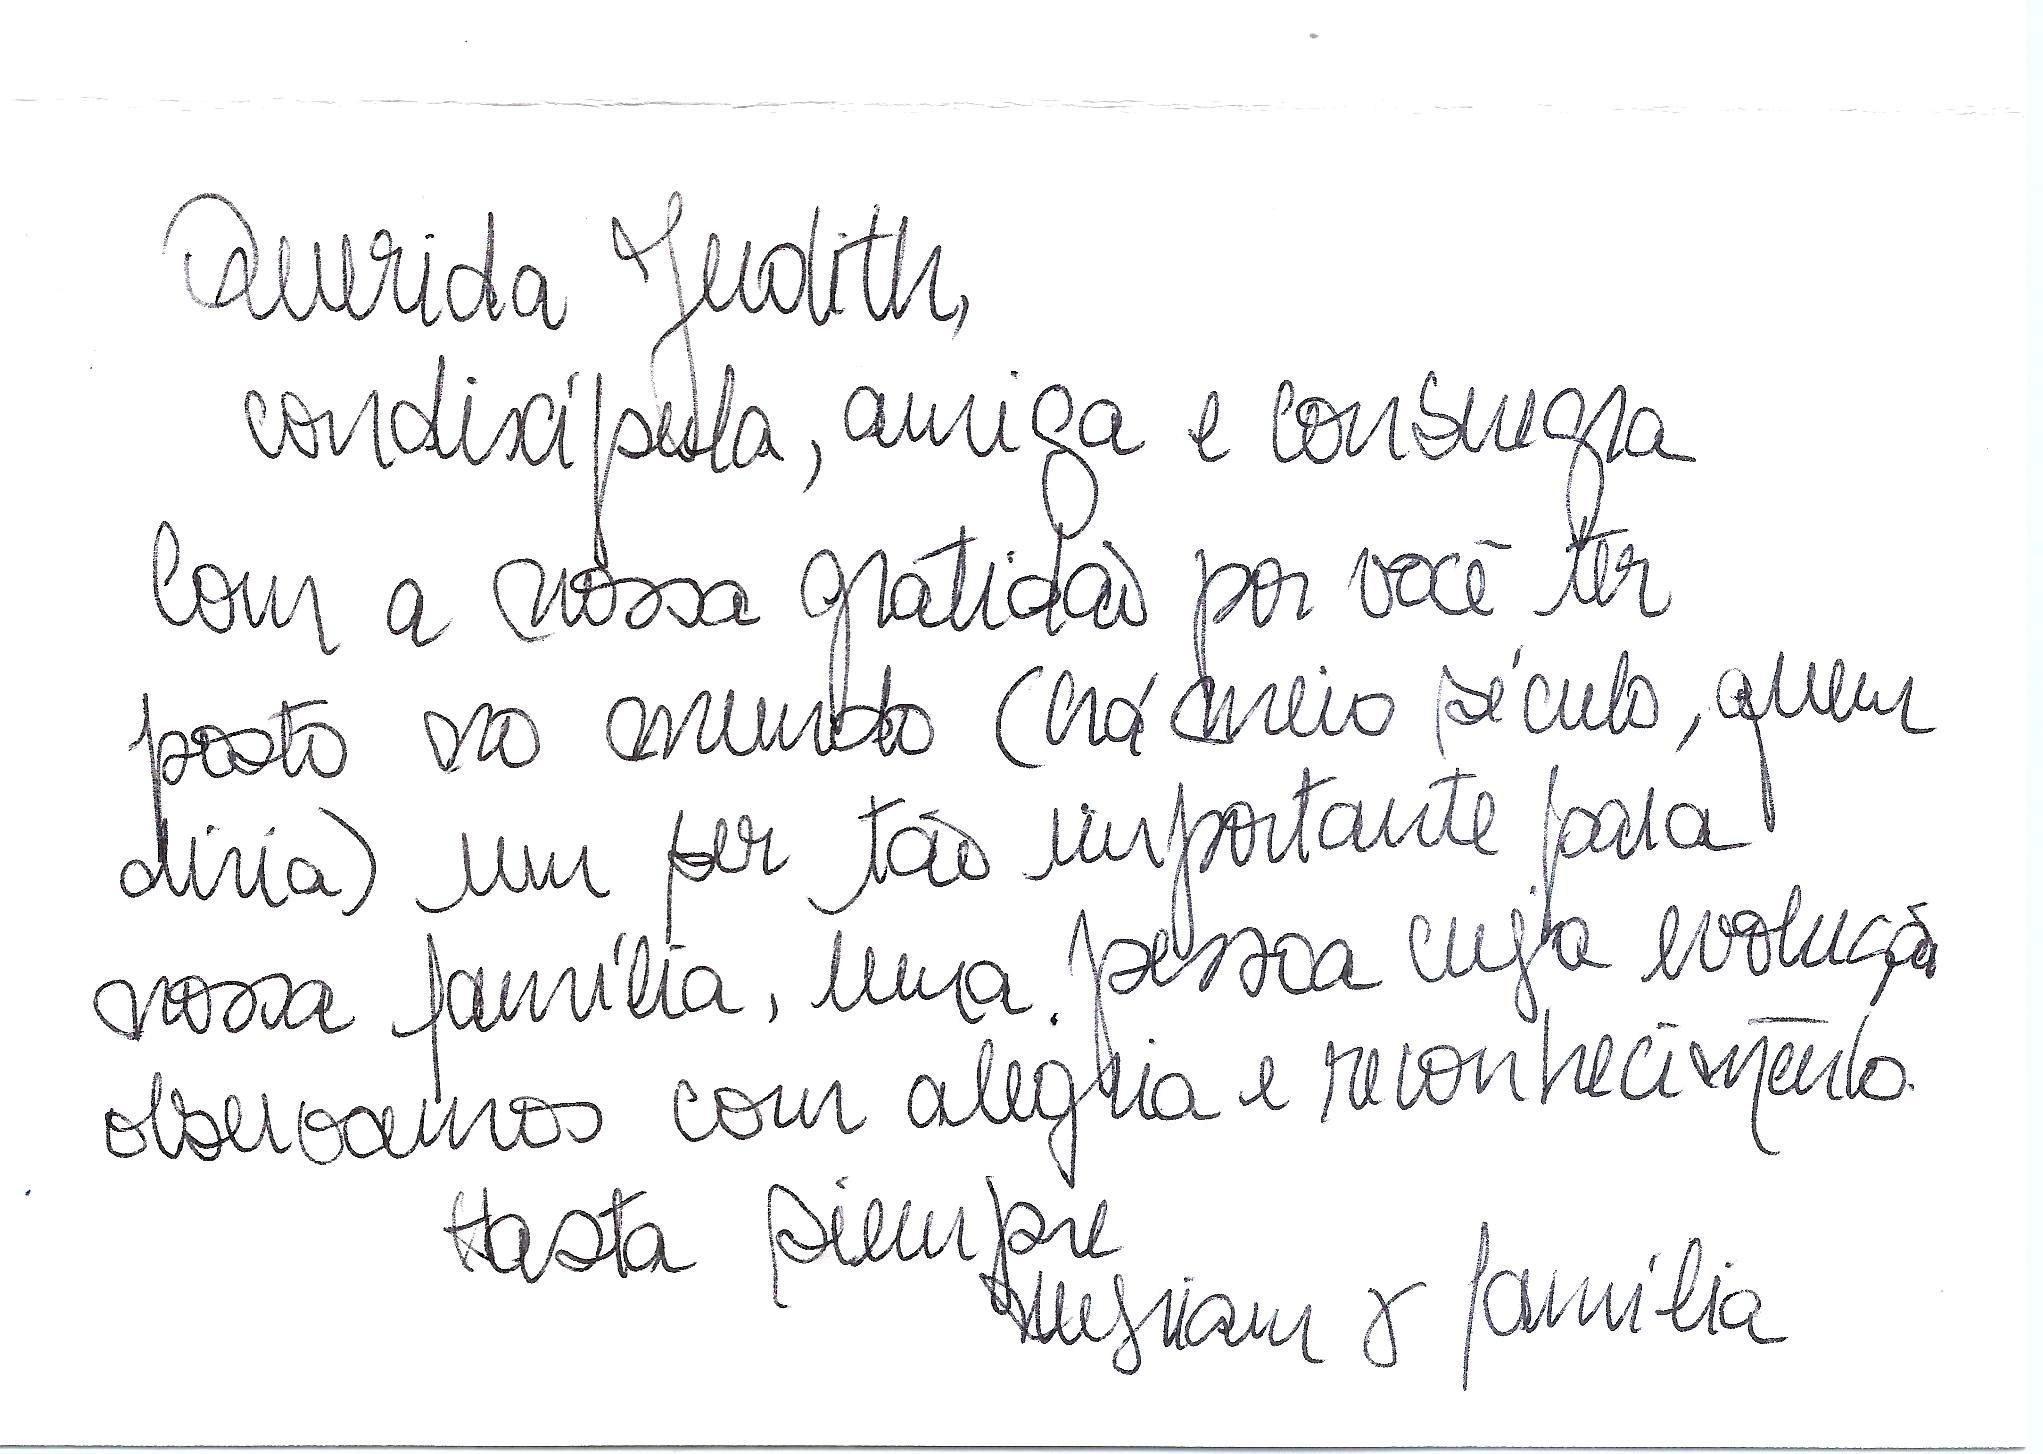 Querida Judith,
condiscípula, amiga e consuegra
Com a nossa gratidão por você ter
posto no mundo (há meio século, quem
diria) um ser tão importante para
nossa família, uma pessoa cuja evolução
observamos com alegria e reconhecimento.
Hasta siempre
Myriam y família